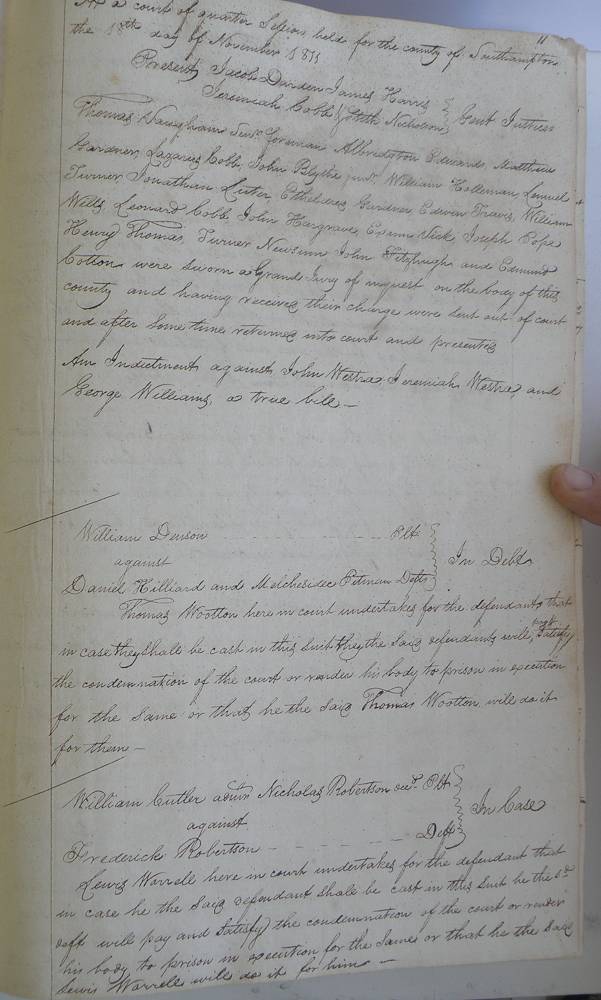 11
At a court of quarter Session held for the county of Southampton
the 18th day of November 1811
Present Jacob Darden James Harris
Jeremiah Cobb & Nicholson Gent Justices
Thomas Vaughan Senr. foreman Albridgton Edwards, Matthew
Gardner, Lazarus Cobb, John Blythe William Holleman, Lemuel
Turner Jonathan Lister, Etheldred Gardner, Edwin Travis, William
Wells, Leonard Cobb, John Hargrave, Joseph Pope
Henry Thomas, Turner Newsum John Fitzhugh and Edmund
Cotton were sworn a Grand Jury of inquest on the body of this
county and having received their charge were sent out of court
and after some time returned into court and presented
An Indictment against John Westra, Jeremiah Westra, and
George Williams, a true bill —
William Denson Plt.
against In Debt
Daniel Hilliard and Melchesidec Pitman Defts
Thomas Wootton here in court undertakes for the defendants that
in case they shall be cast in this suit they the said defendants will pay & satisfy
the condemnation of the court or render his body to prison in execution
for the same or that he the said Thomas Wootton will do it
for them —
William Cutler admr Nicholas Robertson decd. Plt
against In Case
Frederick Robertson Deft
Lewis Warrell here in court undertakes for the defendant that
in case he the said defendant shall be cast in this suit he the sd.
deft will pay and satisfy the condemnation of the court or render
his body to prison in execution for the same or that he the said
Lewis Warrell will do it for him —